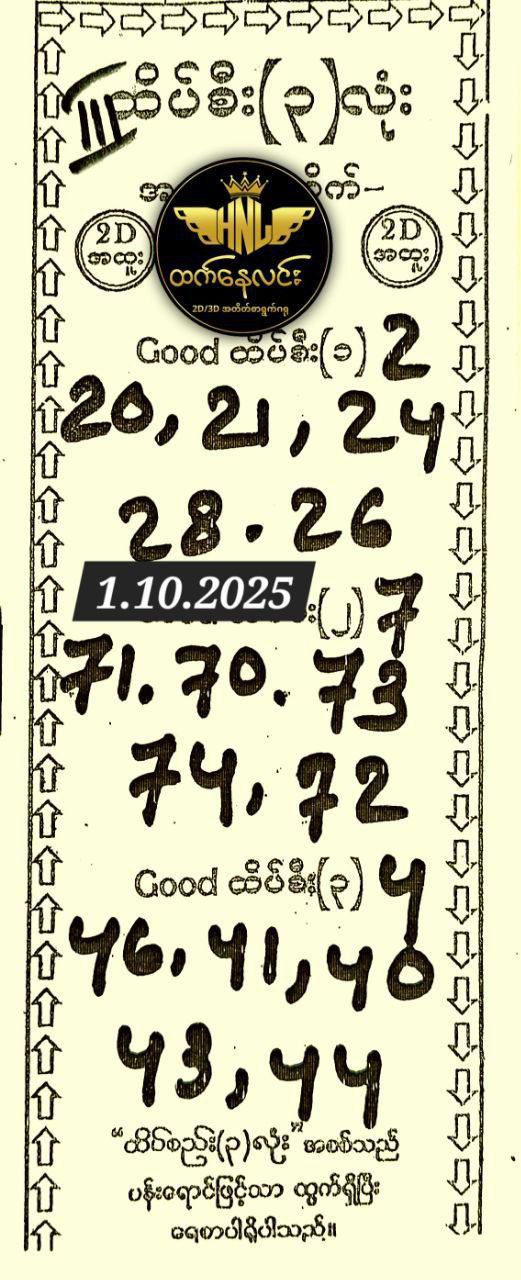 ထိပ်စီး(၃)လုံး
2D
အထူး
HNL
ထက်နေလင်း
2D/3D အတိတ်စာရွက်ဂရု
2D
အထူး
Good ထိပ်စီး(၁) 2
20, 21, 24
28. 26
1.10.2025
(၂) 7
71. 70. 73
74, 72
Good ထိပ်စီး(၃) 4
46, 41, 40
43, 44
“ထိပ်စည်း(၃)လုံး” အစစ်သည်
ပန်းရောင်ဖြင့်သာ ထွက်ရှိပြီး
ရေစာပါရှိပါသည်။